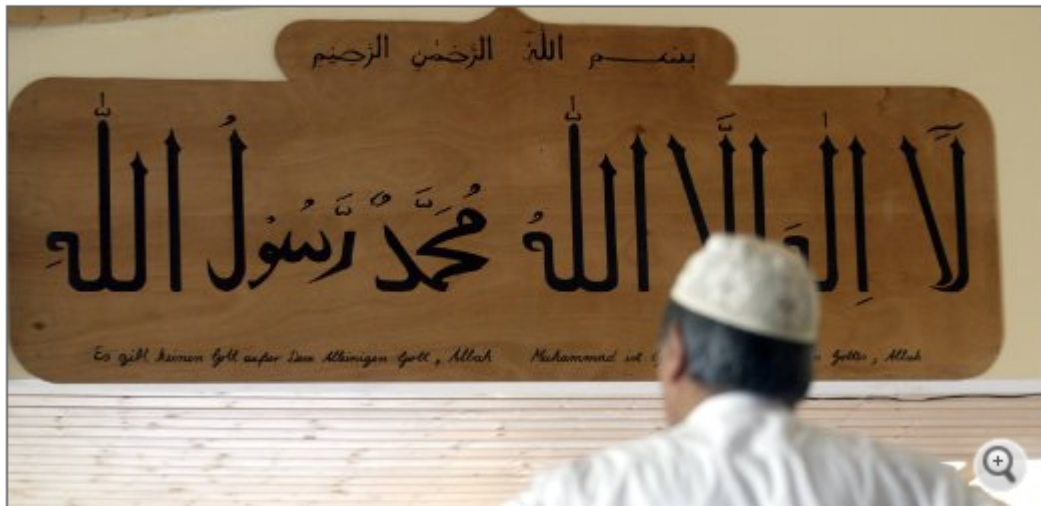 بسم الله الرحمن الرحيم
لَا اِلٰهَ اِلَّا اللّٰهُ مُحَمَّدٌ رَّسُوْلُ اللّٰهِ
Es gibt keinen Gott außer Dem Alleinigen Gott, Allah Muhammad ist Gottes, Allah